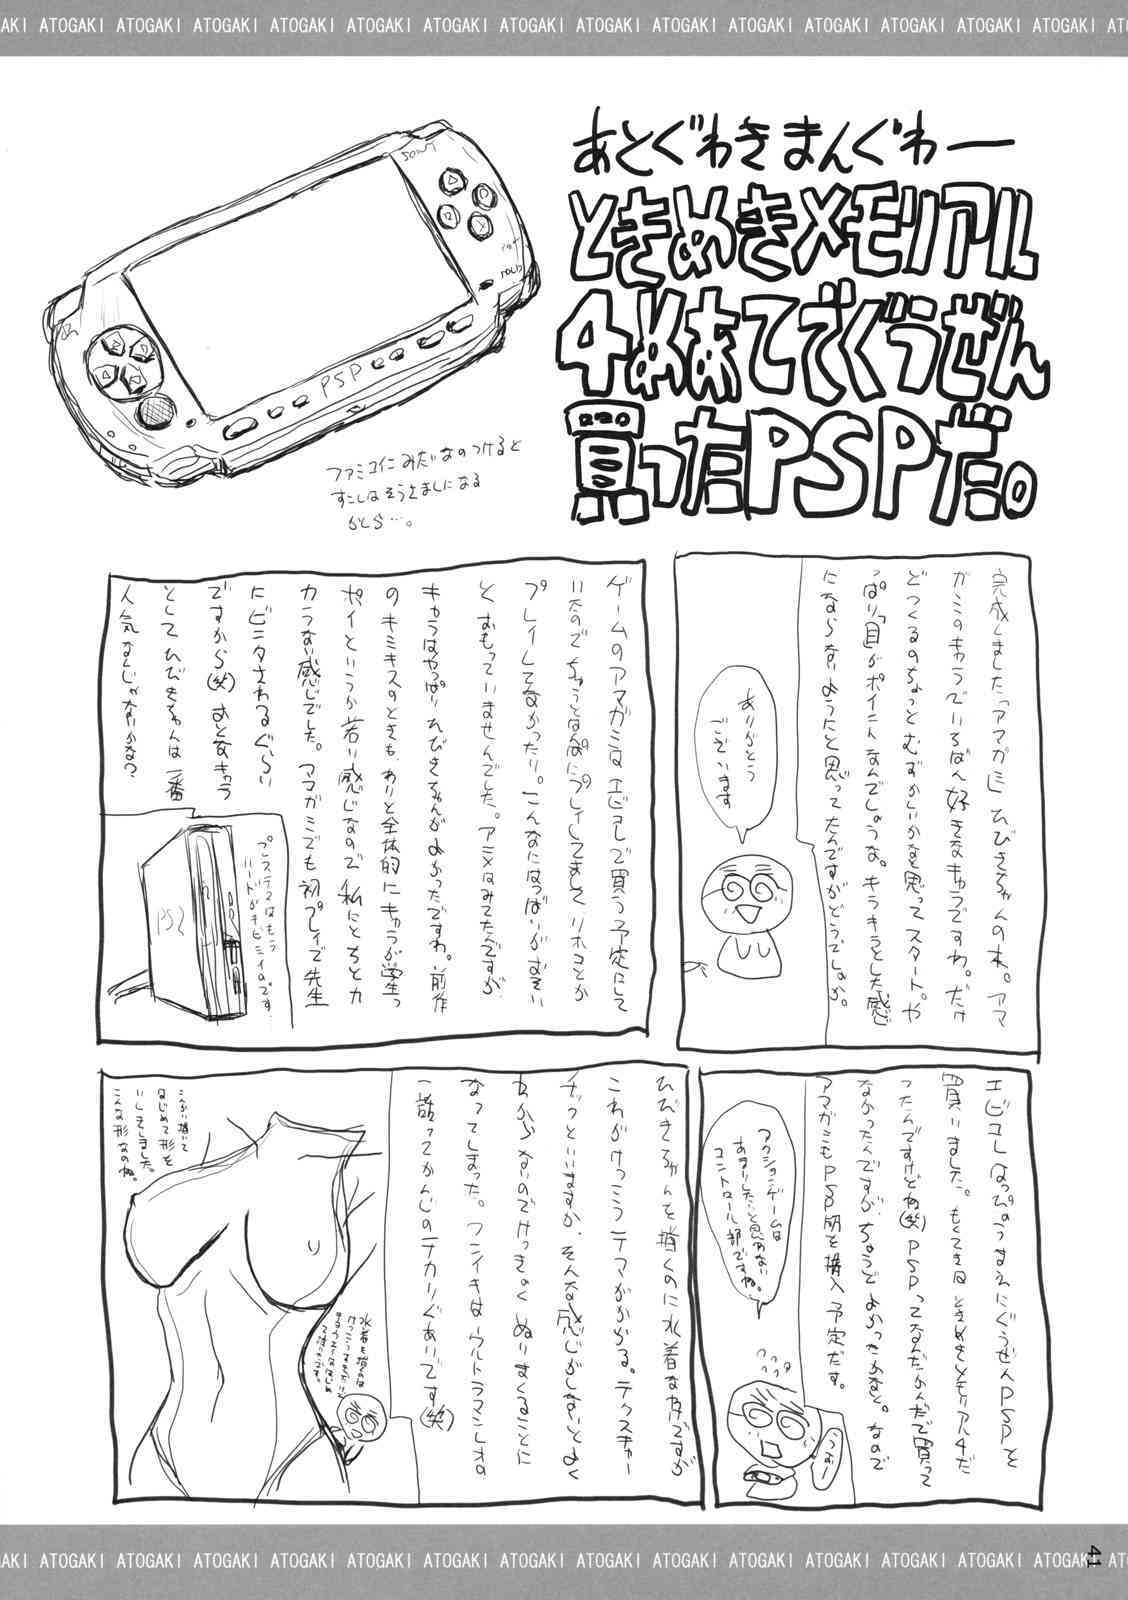 AKI ATOGAKI ATOGAKI ATOGAKI ATOGAKI ATOGAKI ATOGAKI ATOGAKI ATOGAKI ATOGAKI ATOGAKI ATOGAKI ATOGAKI ATOGAKI ATO
あとぐわきまんぐわー
ときめきメモリアル
4めあてでぐうぜん
買ったPSPだ。
SONY
HOLD
PSP
ファミコンにみたいなのつけると
すこしはそうさましになる
かしら…。
完成しました「アマガミ」ひびきちゃんの本。アマ
ガミのキャラでいちばん好きなキャラですわ。だけ
どつくるのちょっとむずかしいかなと思ってスタート。や
っぱり「目」がポイントなんでしょうな。キラキラとした感じ
にならないようにと思ってたんですがどうでしょうか。
ありがとう
ございます
ゲームのアマガミはエビコレで買う予定にして
いたのでちょうどはんぱにプレイしてましてリホコとか
プレイしてなかったり。こんなにはつばいがおそい
とおもっていませんでした。アニメはみてたですが
キャラはやっぱりひびきちゃんがよかったですね。前作
のキミキスのときも、わりと全体的にキャラが学生っ
ポイというか若い感じなので私にとちとカ
カラない感じでした。アマガミでも初プレイで先生
にビンタされるぐらい
ですから(笑)おとなキャラ
としてひびきちゃんは一番
人気なんじゃないかな?
プレステ2はもう
ハードがキビシイのです…
PS2
エビコレはっぴょうのまえにぐうぜんPSPを
買いました。もくてきはときめきメモリアル4だ
ったんですけどね(笑)PSPってなんだかんだで買って
なかったんですが、ちょうどよかったかなと。なので
アマガミもPSP版を購入予定だす。
アクションゲームは
あまりしたいと思わない
コントロール部ですね。
ひびきちゃんを描くのに水着なわけですが
これがけっこうテマがかかる。テクスチャー
チックといいますか、そんな感じがしないとよく
わからないのでけっきょくぬりまくることに
なってしまった。フンイキはウルトラマンレオの
一話ってかんじのテカリぐあいです(笑)
水着を描くのは
こんかい描いて
はじめて形を
いしきしました。
こんな形なのね。
41
AKI ATOGAKI ATOGAKI ATOGAKI ATOGAKI ATOGAKI ATOGAKI ATOGAKI ATOGAKI ATOGAKI ATOGAKI ATOGAKI ATOGAKI ATOGAKI ATO